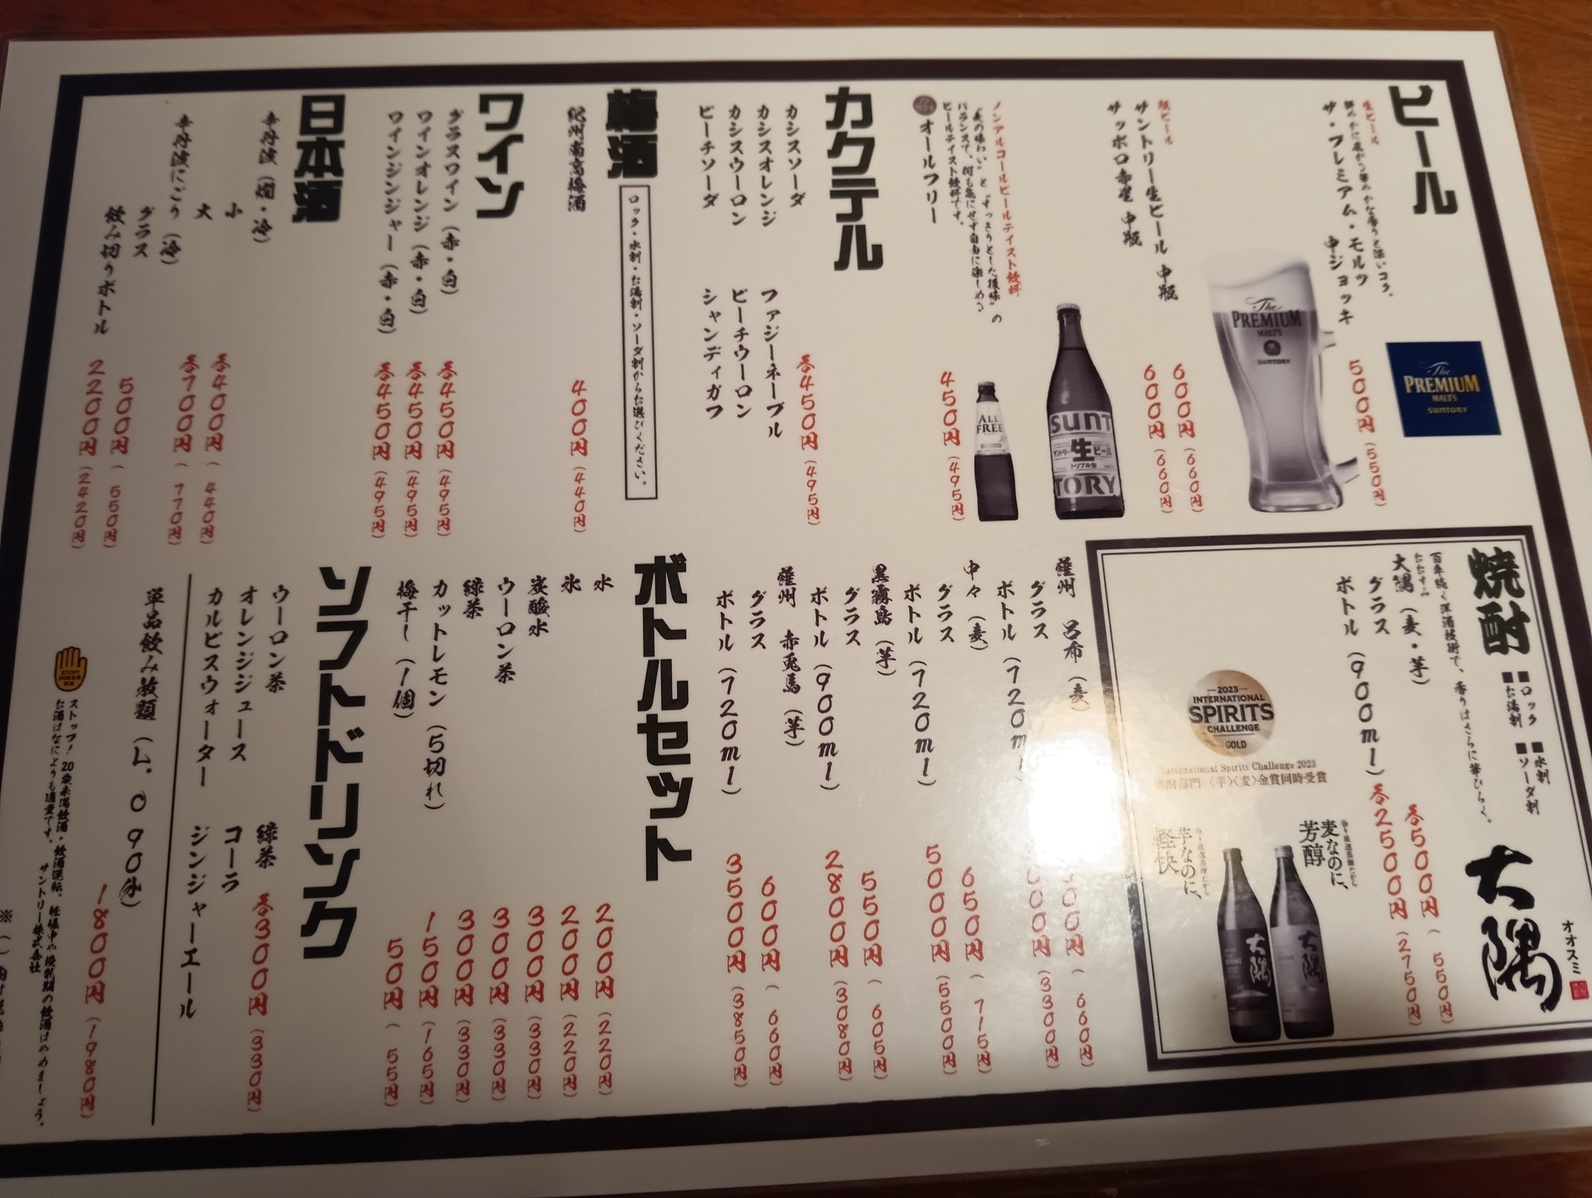 ビール
生ビール
ザ・プレミアム・モルツ 中ジョッキ
500円(550円)
The PREMIUM MALT'S SUNTORY
The PREMIUM MALT'S SUNTORY
瓶ビール
サントリー生ビール 中瓶
600円(660円)
サッポロ赤星 中瓶
600円(660円)
SUNTORY
サントリー生ビール
トリプル生
ALL FREE
ノンアルコールビールテイスト飲料
"麦の味わい"と"すっきりとした後味"の
バランスで、何も気にせず自由に楽しめる
ビールテイスト飲料です。
オールフリー
450円(495円)
カクテル
各450円(495円)
カシスソーダ
カシスオレンジ
カシスウーロン
ピーチソーダ
ファジーネーブル
ピーチウーロン
シャンディガフ
梅酒
ロック・水割・お湯割・ソーダ割からお選びください。
紀州南高梅酒
400円(440円)
ワイン
グラスワイン(赤・白)
各450円(495円)
ワインオレンジ(赤・白)
各450円(495円)
ワインジンジャー(赤・白)
各450円(495円)
日本酒
辛丹波(燗・冷)
小
各400円(440円)
大
各700円(770円)
辛丹波にごり(冷)
グラス
500円(550円)
飲み切りボトル
2200円(2420円)
焼酎
■ロック ■水割
■お湯割 ■ソーダ割
大隅
オオスミ
百年続く洋酒技術で、香りはさらに華ひらく。
おおすみ
大隅(麦・芋)
グラス
各500円(550円)
ボトル(900ml)
各2500円(2750円)
2023
INTERNATIONAL
SPIRITS
CHALLENGE
GOLD
International Spirits Challenge 2023
焼酎部門〈芋〉〈麦〉金賞同時受賞
麦なのに、
芳醇
芋なのに、
軽快
大隅
大隅
薩州 呂布(麦)
グラス
(660円)
ボトル(720ml)
(3300円)
中々(麦)
グラス
650円(715円)
ボトル(720ml)
5000円(5500円)
黒霧島(芋)
グラス
550円(605円)
ボトル(900ml)
2800円(3080円)
薩州 赤兎馬(芋)
グラス
600円(660円)
ボトル(720ml)
3500円(3850円)
ボトルセット
水
200円(220円)
氷
200円(220円)
炭酸水
300円(330円)
ウーロン茶
300円(330円)
緑茶
300円(330円)
カットレモン(5切れ)
150円(165円)
梅干し(1個)
50円(55円)
ソフトドリンク
ウーロン茶
オレンジジュース
カルピスウォーター
緑茶
コーラ
ジンジャーエール
各300円(330円)
単品飲み放題(L.O90分)
1800円(1980円)
ストップ!20歳未満飲酒・飲酒運転。妊娠中や授乳期の飲酒はやめましょう。
お酒はなによりも適量です。 サントリー株式会社